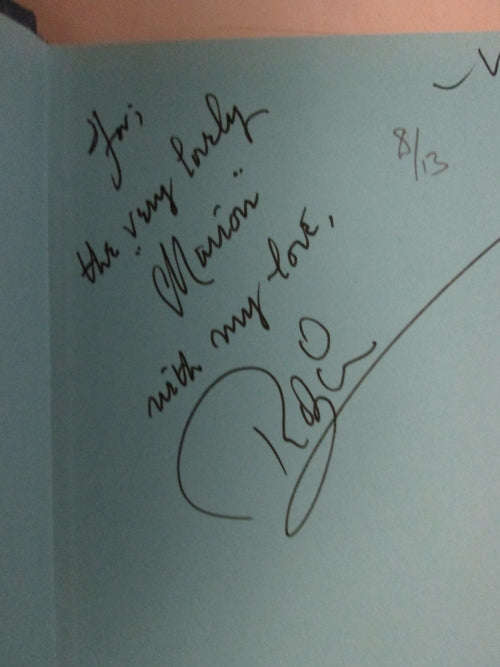 For;
the very lovely
"Marion"
with my love,
8/13